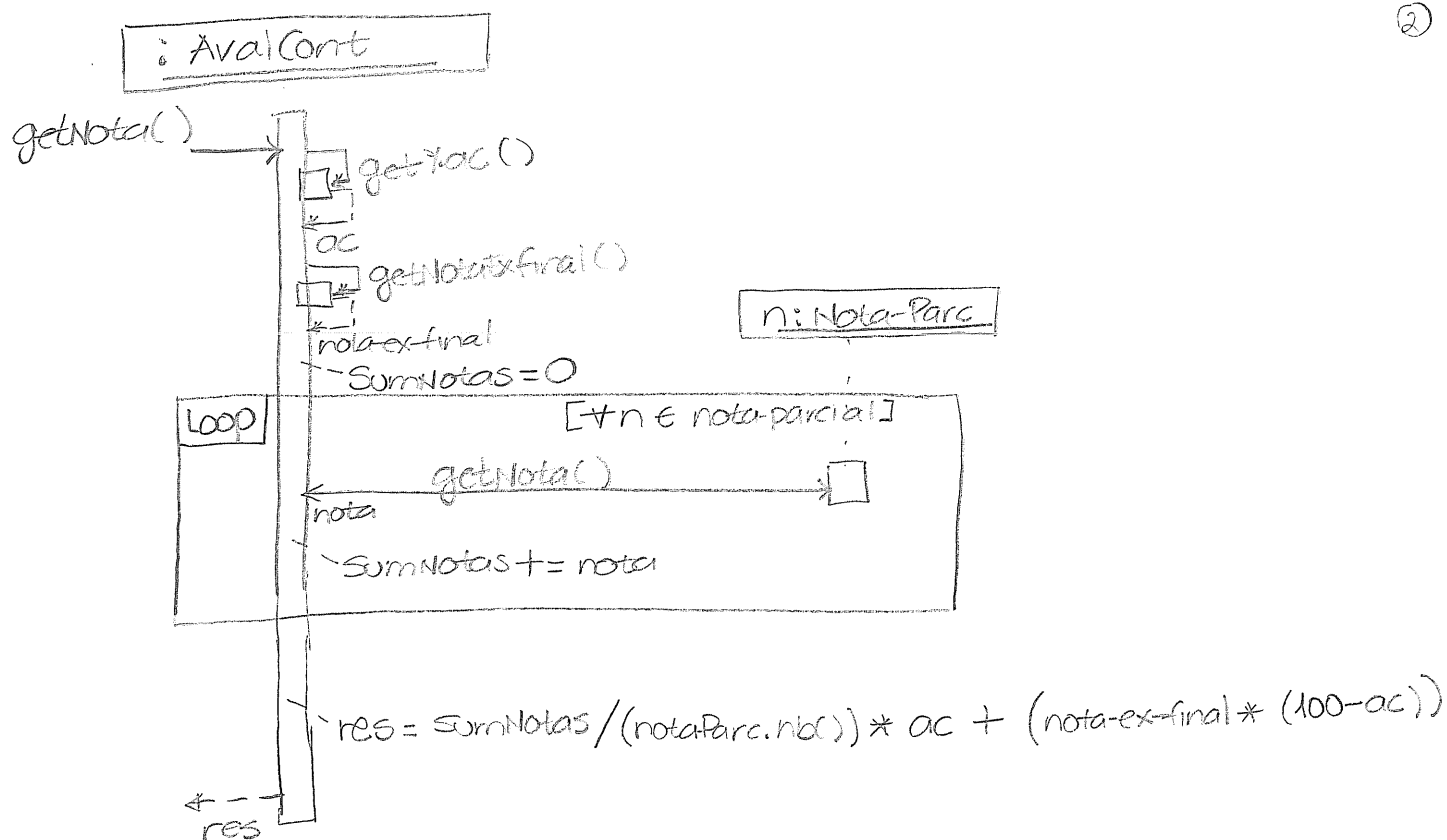 ②
: AvalCont
getNota()
get%ac()
ac
getNotaExfinal()
n: Nota-Parc
nota-ex-final
SumNotas=0
Loop
[∀n ∈ nota-parcial]
getNota()
nota
SumNotas += nota
res = sumNotas/(notaParc.nb()) * ac + (nota-ex-final * (100-ac))
res